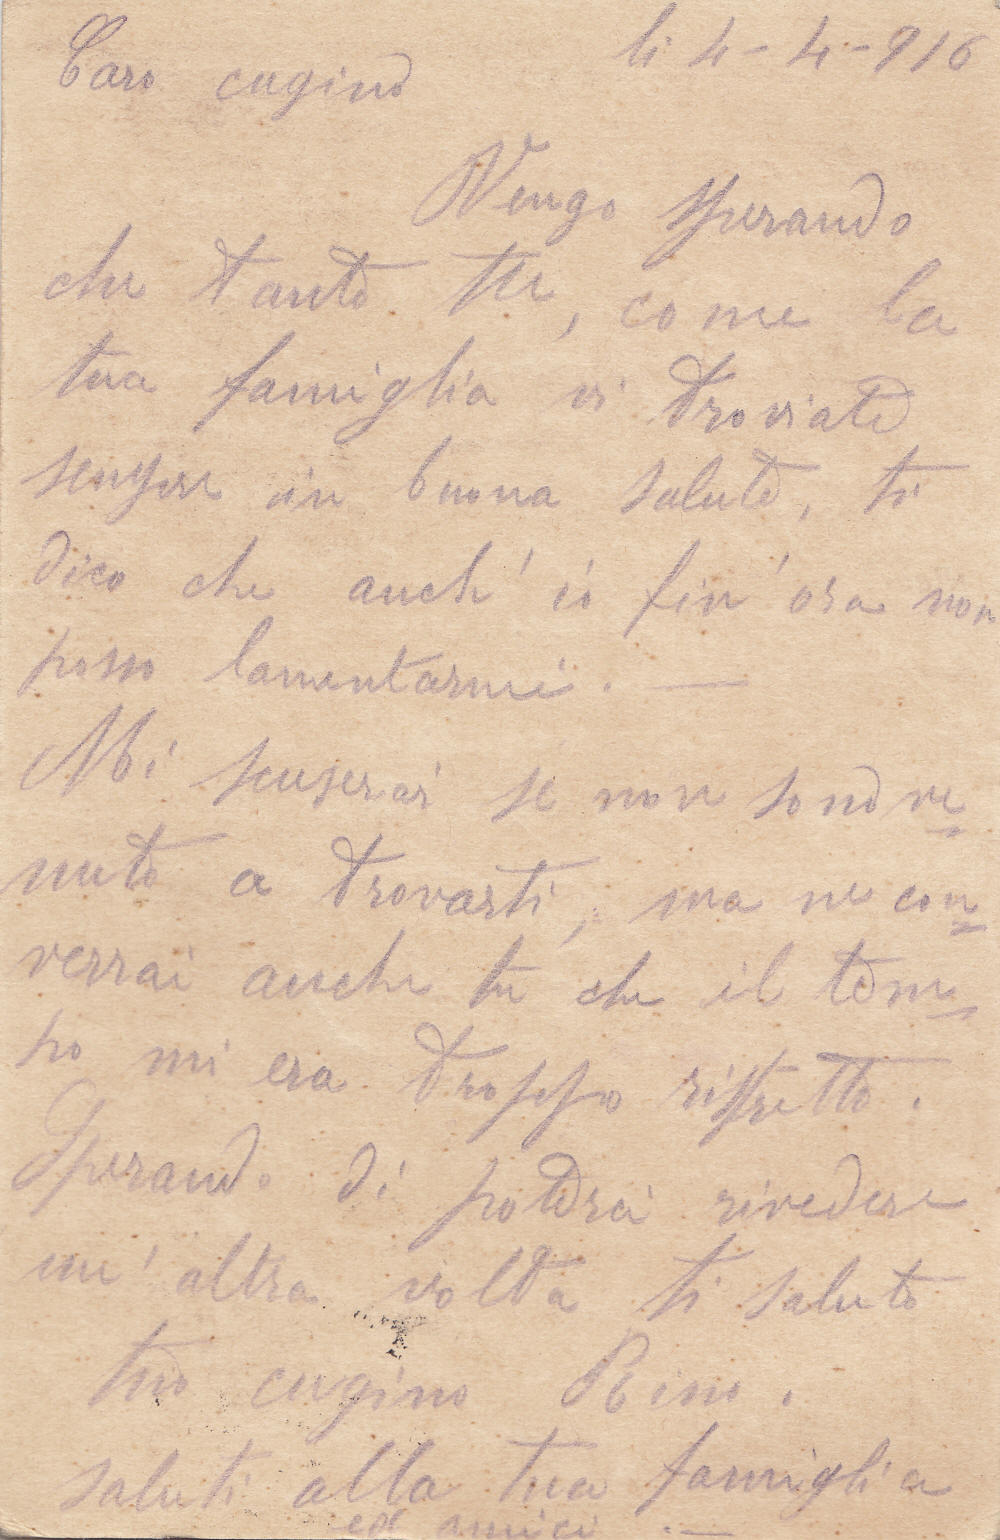 li 4-4-916
Caro cugino
Vengo sperando
che tanto te, come la
tua famiglia vi troviate
sempre in buona salute, ti
dico che anch' io fin' ora non
posso lamentarmi. —
Mi scuserai se non sono ve=
nuto a trovarti, ma ne con=
verrai anche tu che il tem=
po mi era troppo ristretto.
Sperando di poterai rivedere
un' altra volta ti saluto
tuo cugino Rino.
saluti alla tua famiglia
ed amici. —